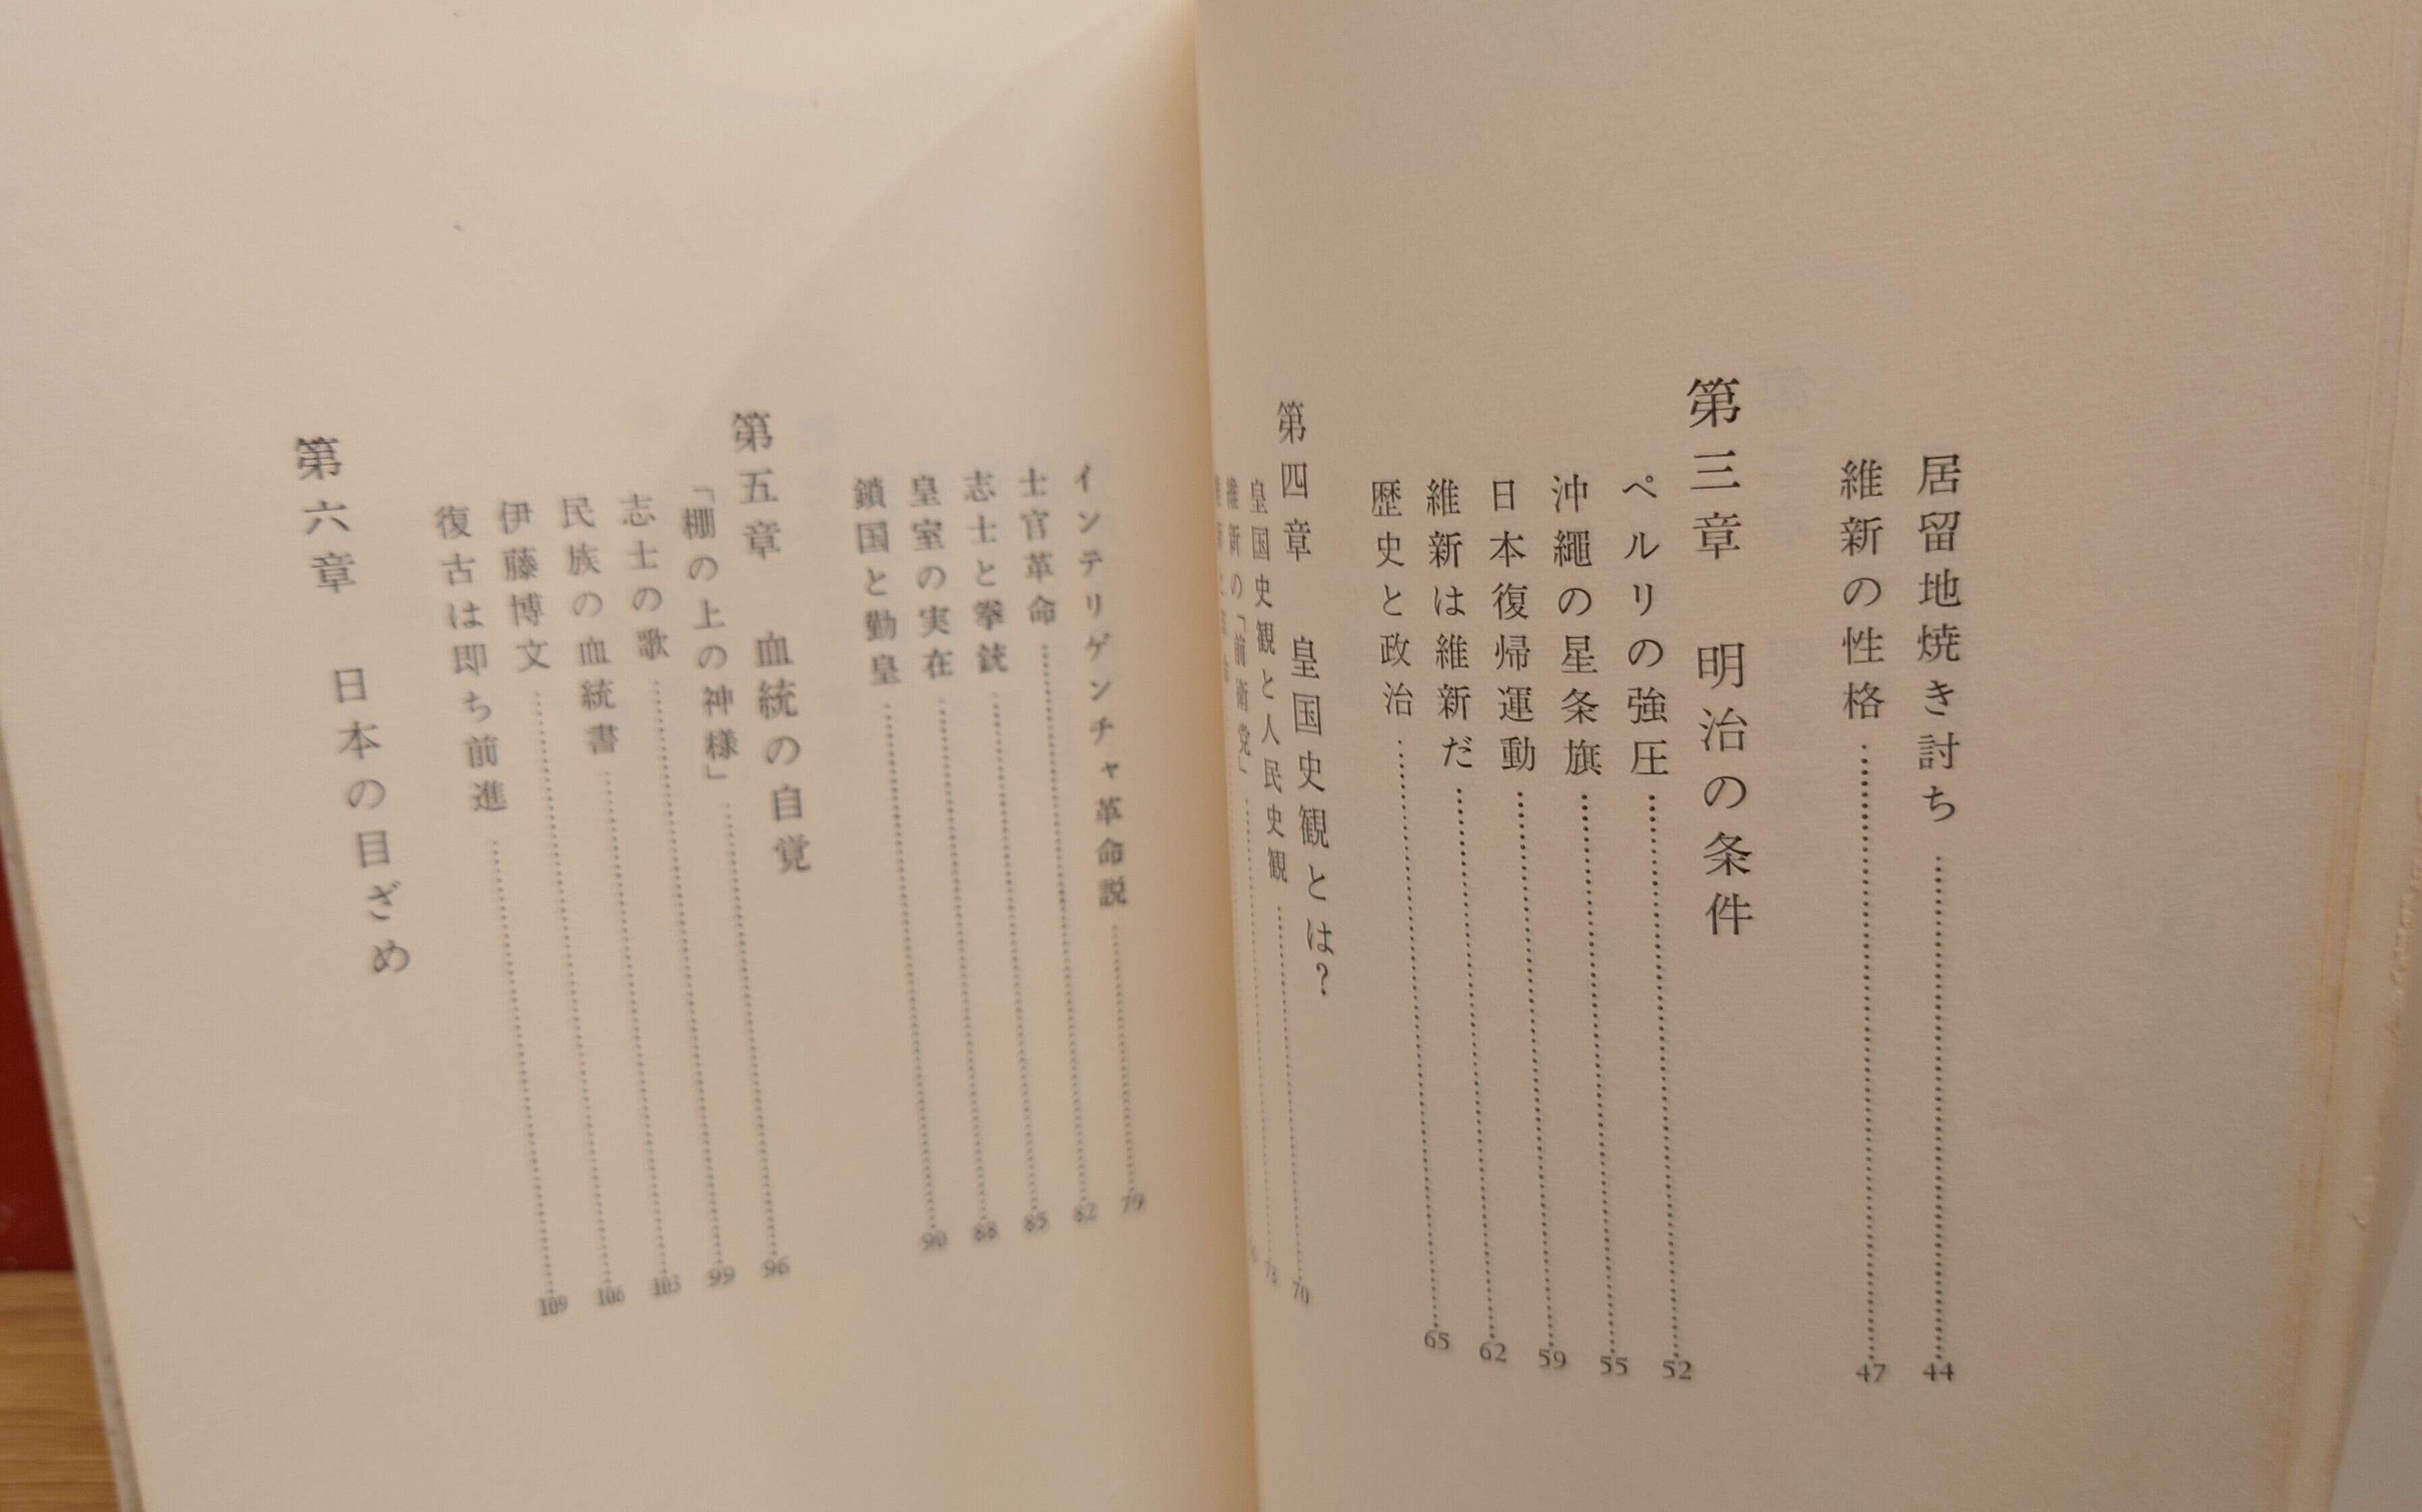 居留地焼き討ち……44
維新の性格……47
第三章　明治の条件
ペルリの強圧……52
沖縄の星条旗……55
日本復帰運動……59
維新は維新だ……62
歴史と政治……65
第四章　皇国史観とは？
皇国史観と人民史観……70
維新の「前衛党」……73
インテリゲンチャ革命説……79
士官革命……82
志士と拳銃……85
皇室の実在……88
鎖国と勤皇……90
第五章　血統の自覚
「棚の上の神様」……96
志士の歌……99
民族の血統書……103
伊藤博文……106
復古は即ち前進……109
第六章　日本の目ざめ